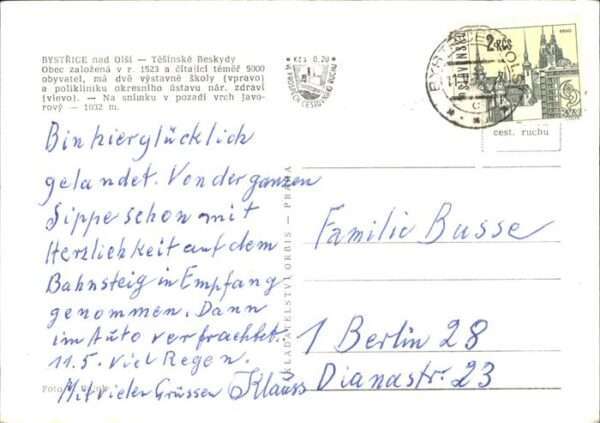 BYSTŘICE nad Olší — Těšínské Beskydy
Obec založená v r. 1523 a čítající téměř 5000
obyvatel, má dvě výstavné školy (vpravo)
a polikliniku okresního ústavu nár. zdraví
(vlevo). — Na snímku v pozadí vrch Javo-
rový — 1032 m.
Kčs 0,20
CESTOVNÍHO RUCHU
2 KČS
BRNO
cest. ruchu
Bin hier glücklich
gelandet. Von der ganzen
Sippe schon mit
Herzlichkeit auf dem
Bahnsteig in Empfang
genommen. Dann
im Auto verfrachtet.
11.5. viel Regen.
Mit vielen Grüssen Klauss
Foto
NAKLADATELSTVÍ ORBIS — PRAHA
Familie Busse
1 Berlin 28
Dianastr. 23